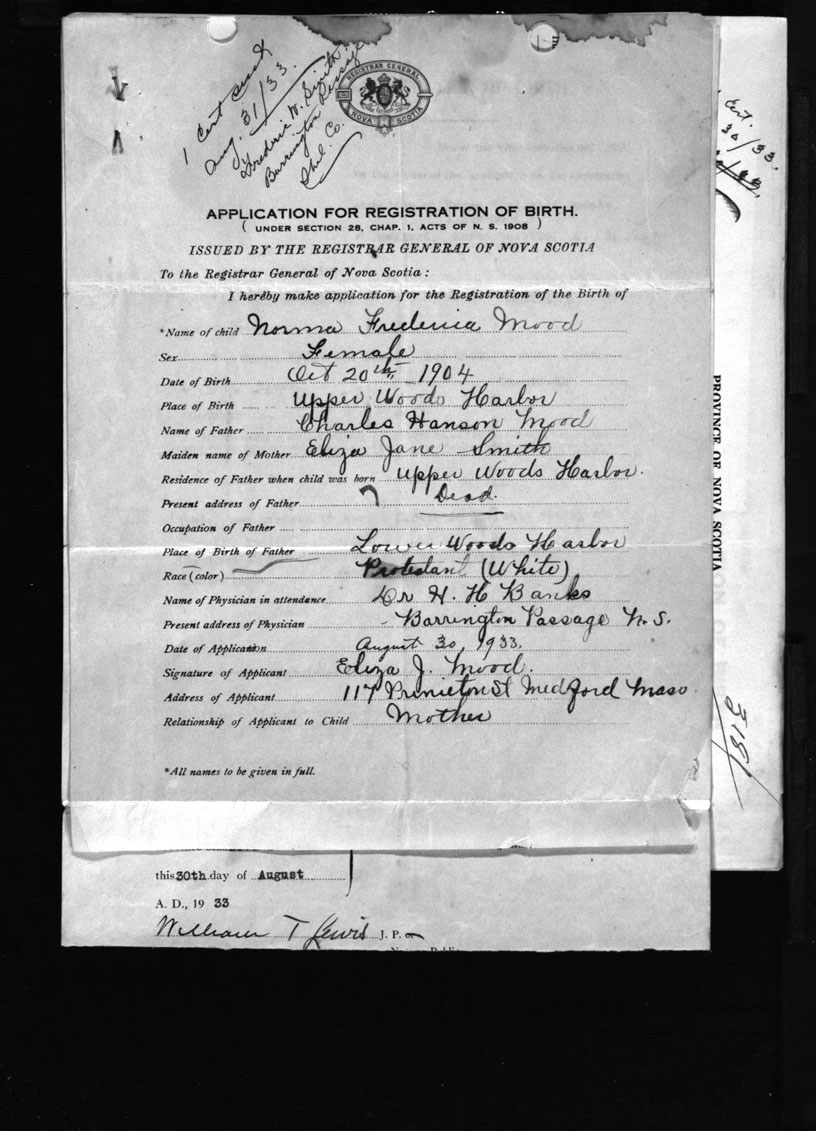 1 Cert sent
Aug. 31/33.
Frederic W. Smith
Barrington Passage
Shel. Co.
REGISTRAR GENERAL
NOVA SCOTIA
APPLICATION FOR REGISTRATION OF BIRTH.
( UNDER SECTION 28, CHAP. 1, ACTS OF N. S. 1908 )
ISSUED BY THE REGISTRAR GENERAL OF NOVA SCOTIA
To the Registrar General of Nova Scotia :
I hereby make application for the Registration of the Birth of
*Name of child Norma Frederica Mood
Sex Female
Date of Birth Oct 20th 1904
Place of Birth Upper Woods Harbor
Name of Father Charles Hanson Mood
Maiden name of Mother Eliza Jane Smith
Residence of Father when child was born Upper Woods Harbor.
Present address of Father Dead.
Occupation of Father
Place of Birth of Father Lower Woods Harbor
Race (color) Protestant (White)
Name of Physician in attendance Dr H. H Banks
Present address of Physician - Barrington Passage N. S.
Date of Application August 30, 1933.
Signature of Applicant Eliza J. Mood.
Address of Applicant 117 Princeton St Medford Mass
Relationship of Applicant to Child Mother
*All names to be given in full.
this 30th day of August
A. D., 19 33
William T Lewis J. P. or
Cert.
30/33.
PROVINCE OF NOVA SCOTIA
318/